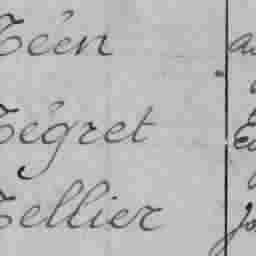 Téen
Tégret
Tellier